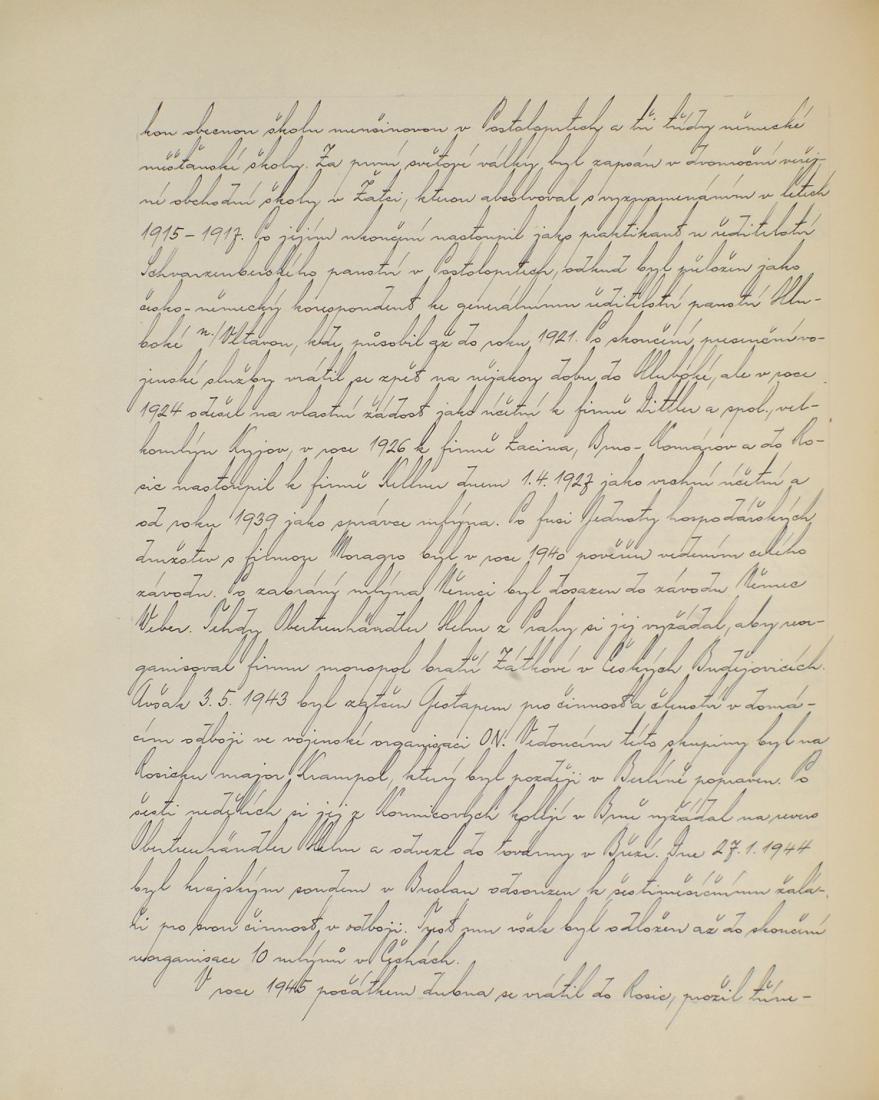 kou obecnou školu menšinovou v Postoloprtech a tři třídy německé
měšťanské školy. Za první světové války byl zapsán v dvouroční veřej-
né obchodní školy v Žatci, kterou absolvoval s vyznamenáním v letech
1915-1917. Po jejím ukončení nastoupil jako praktikant u ředitelství
Schvarzenberského panství v Postoloprtech, odkud byl přeložen jako
česko-německý korespondent ke generálnímu ředitelství panství Hlu-
boké n./Vltavou, kde působil až do roku 1921. Po skončení presenční vo-
jenské služby vrátil se zpět na nějakou dobu do Hluboké, ale v roce
1924 odešel na vlastní žádost jako účetní k firmě Dittler a spol., vel-
komlýn Kyjov, v roce 1926 k firmě Lacina, Brno-Komárov a do Ro-
sic nastoupil k firmě Kellner dnem 1.4.1927 jako vrchní účetní a
od roku 1939 jako správce mlýna. Po fusi Jednoty hospodářských
družstev s firmou Moragro byl v roce 1940 pověřen vedením celého
závodu. Po zabrání mlýna Němci byl dosazen do závodu Němec
Weber. Tehdy Obertreuhändler Helm z Prahy si jej vyžádal, aby reor-
ganisoval firmu monopol bratří Zátkové v Českých Budějovicích.
Avšak 3.5.1943 byl zatčen Gestapem pro činnost a členství v domá-
cím odboji ve vojenské organisaci ON. Vedoucím této skupiny byl na
Rosicku major Krampol, který byl později v Berlíně popraven. Po
šesti nedělích si jej z Kounicových kolejí v Brně vyžádal na revers
Obertreuhändler Helm a odvezl do továrny v Březí. Dne 27.1.1944
byl krajským soudem v Breslau odsouzen k šestiměsíčnímu žalá-
ři pro svou činnost v odboji. Trest mu však byl odložen až do skončení
reorganisace 10 mlýnů v Čechách.
V roce 1945 počátkem dubna se vrátil do Rosic, prožil těžne-